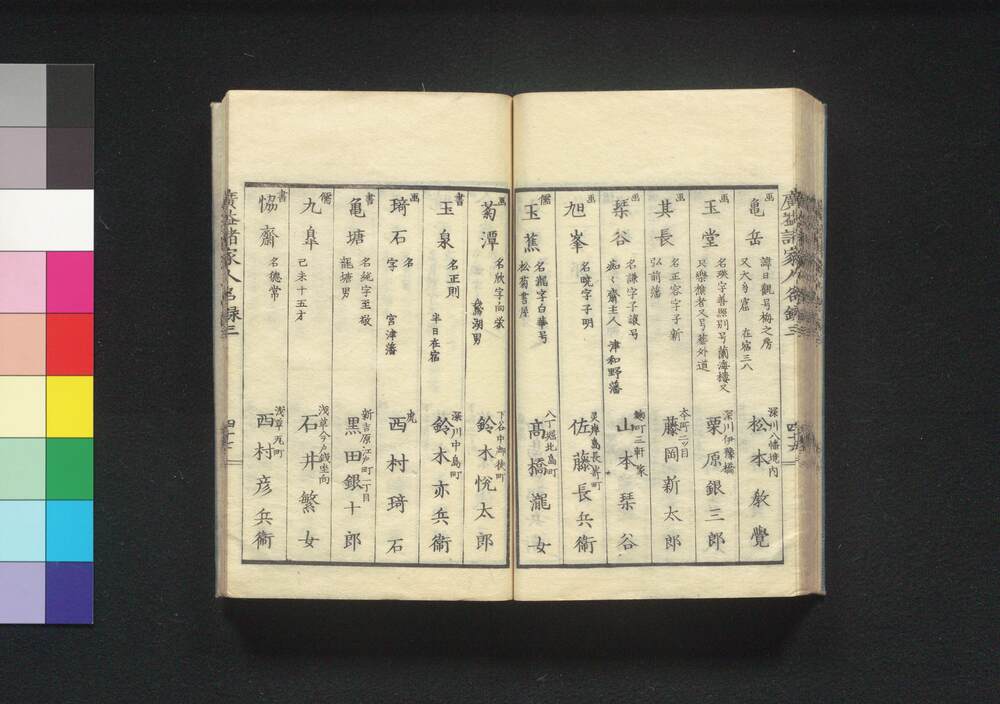 画 亀岳 諱日観号梅之房
又大多窟 在宿三八
深川八幡境内 松本教覺
画 玉堂 名瑛字善照別号蘭海樓又
只樂樵者又号墓外道
深川伊豫橋 栗原銀三郎
画 其長 名正容字子新
弘前藩
本町二ツ目 藤岡新太郎
画 栞谷 名謙字子讓号
痴々齋主人 津和野藩
麹町三軒家 山本栞谷
画 旭峯 名曉字子明
灵岸島長嵜町 佐藤長兵衛
儒 玉蕉 名瀧字白華号
松菊書屋
八丁堀北島町 髙橋瀧女
画 菊潭 名欣字向栄
鶯湖男
下谷中御徒町 鈴木悅太郎
書 玉泉 名正則
半日在宿
深川中島町 鈴木亦兵衛
画 琦石 名
字 宮津藩
虎 西村琦石
書 亀塘 名純字至敬
龍塘男
新吉原江戸町二丁目 黒田銀十郎
儒 九皐 己未十五才
浅草今戸銭坐向 石井繁女
書 恊齋 名德常
浅草瓦町 西村彦兵衛
廣益諸家人名録三